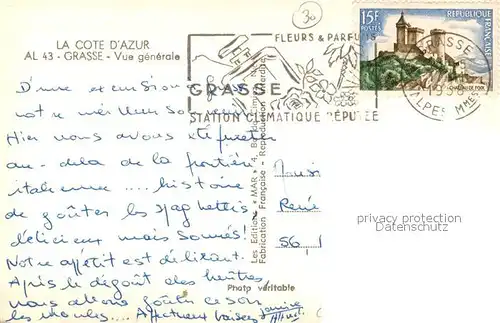 30
LA COTE D'AZUR
AL 43 - GRASSE - Vue générale
15F
POSTES
RÉPUBLIQUE FRANÇAISE
CHATEAU DE FOIX
FLEURS & PARFUMS
GRASSE
STATION CLIMATIQUE RÉPUTÉE
GRASSE
ALPES MMES
D'une excursion
notre meilleur souvenir
Hier nous avons été jusqu'
au-delà de la frontière
italienne .... histoire
de goûter les spaghettis
délicieux mais
Notre appétit est délirant.
Après le dégoût des huîtres
nous allons goûter ce soir
les moules.... Affectueux baisers
Les Editions « MAR »
Fabrication Française - Reproduction Interdite
Photo véritable
René
56, 
privacy protection
Datenschutz